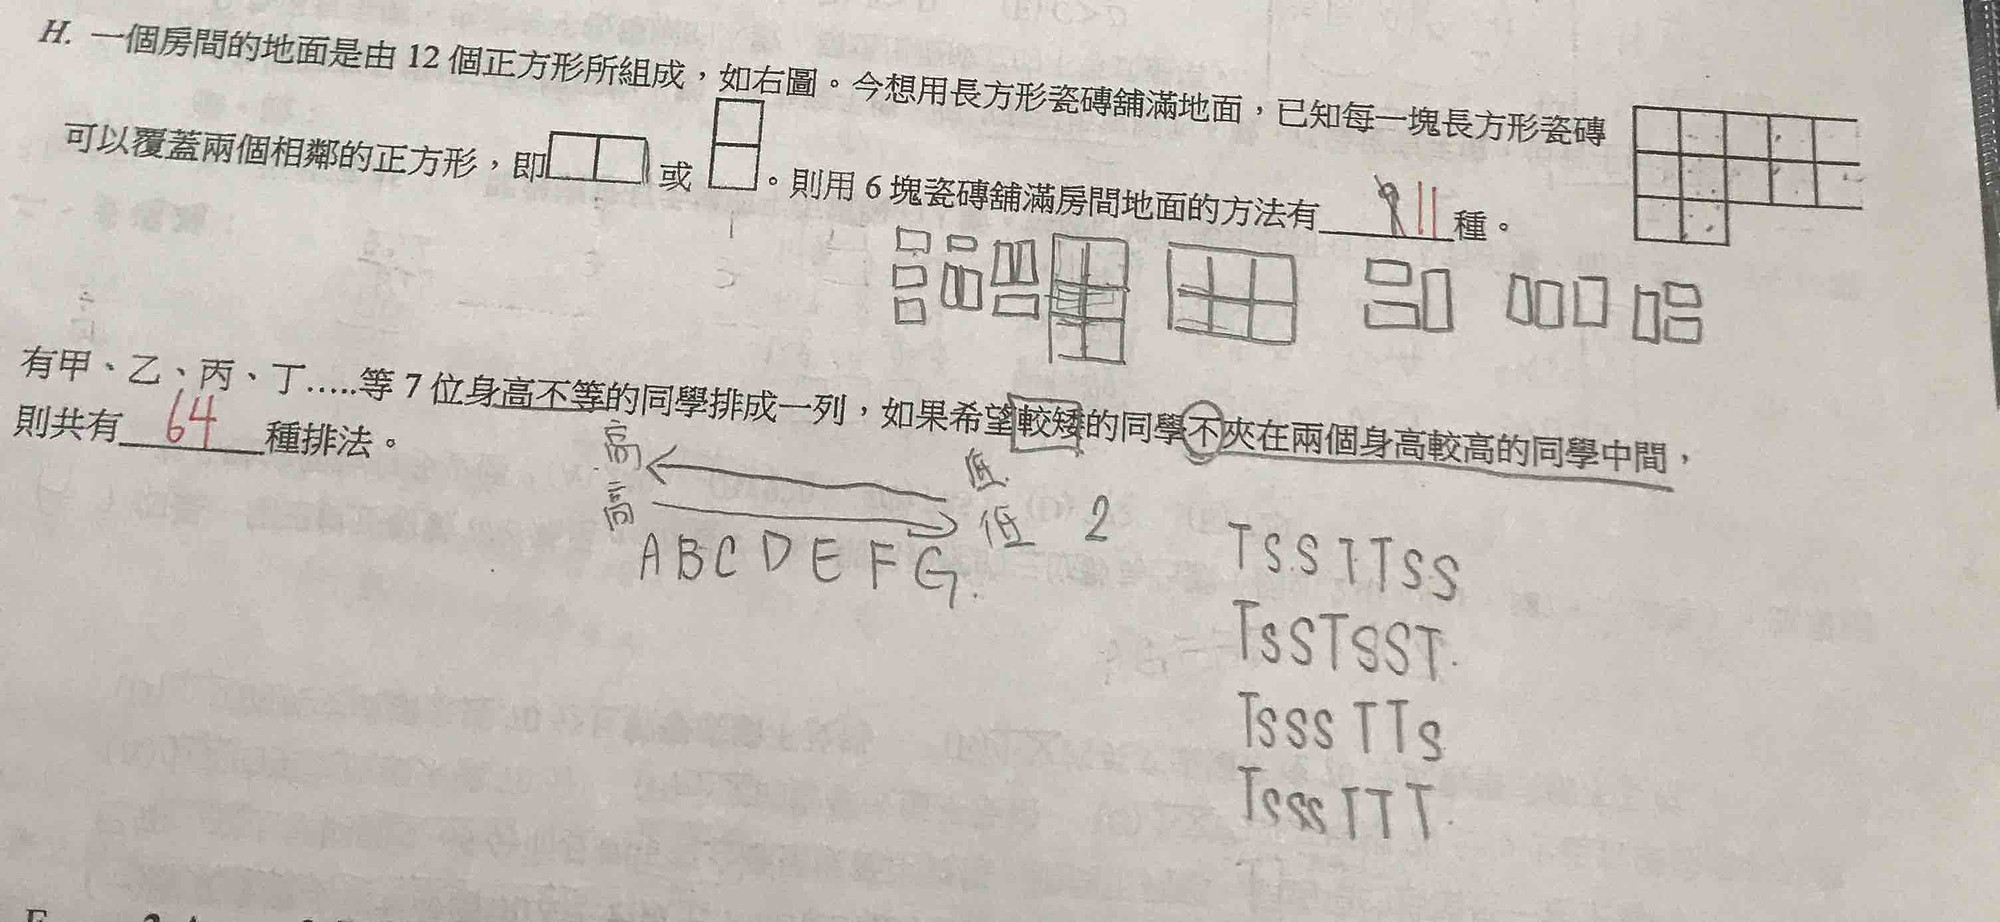 H. 一個房間的地面是由 12 個正方形所組成，如右圖。今想用長方形瓷磚舖滿地面，已知每一塊長方形瓷磚
可以覆蓋兩個相鄰的正方形，即 或 。則用 6 塊瓷磚舖滿房間地面的方法有 11 種。
有甲、乙、丙、丁.....等 7 位身高不等的同學排成一列，如果希望較矮的同學不夾在兩個身高較高的同學中間，
則共有 64 種排法。
高 低
高 低 2
A B C D E F G.
TSSTTSS
TSSTSST.
TSSSTTS
TSSSTTT